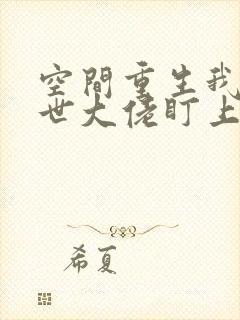 空間重生我
世大佬盯上
希夏